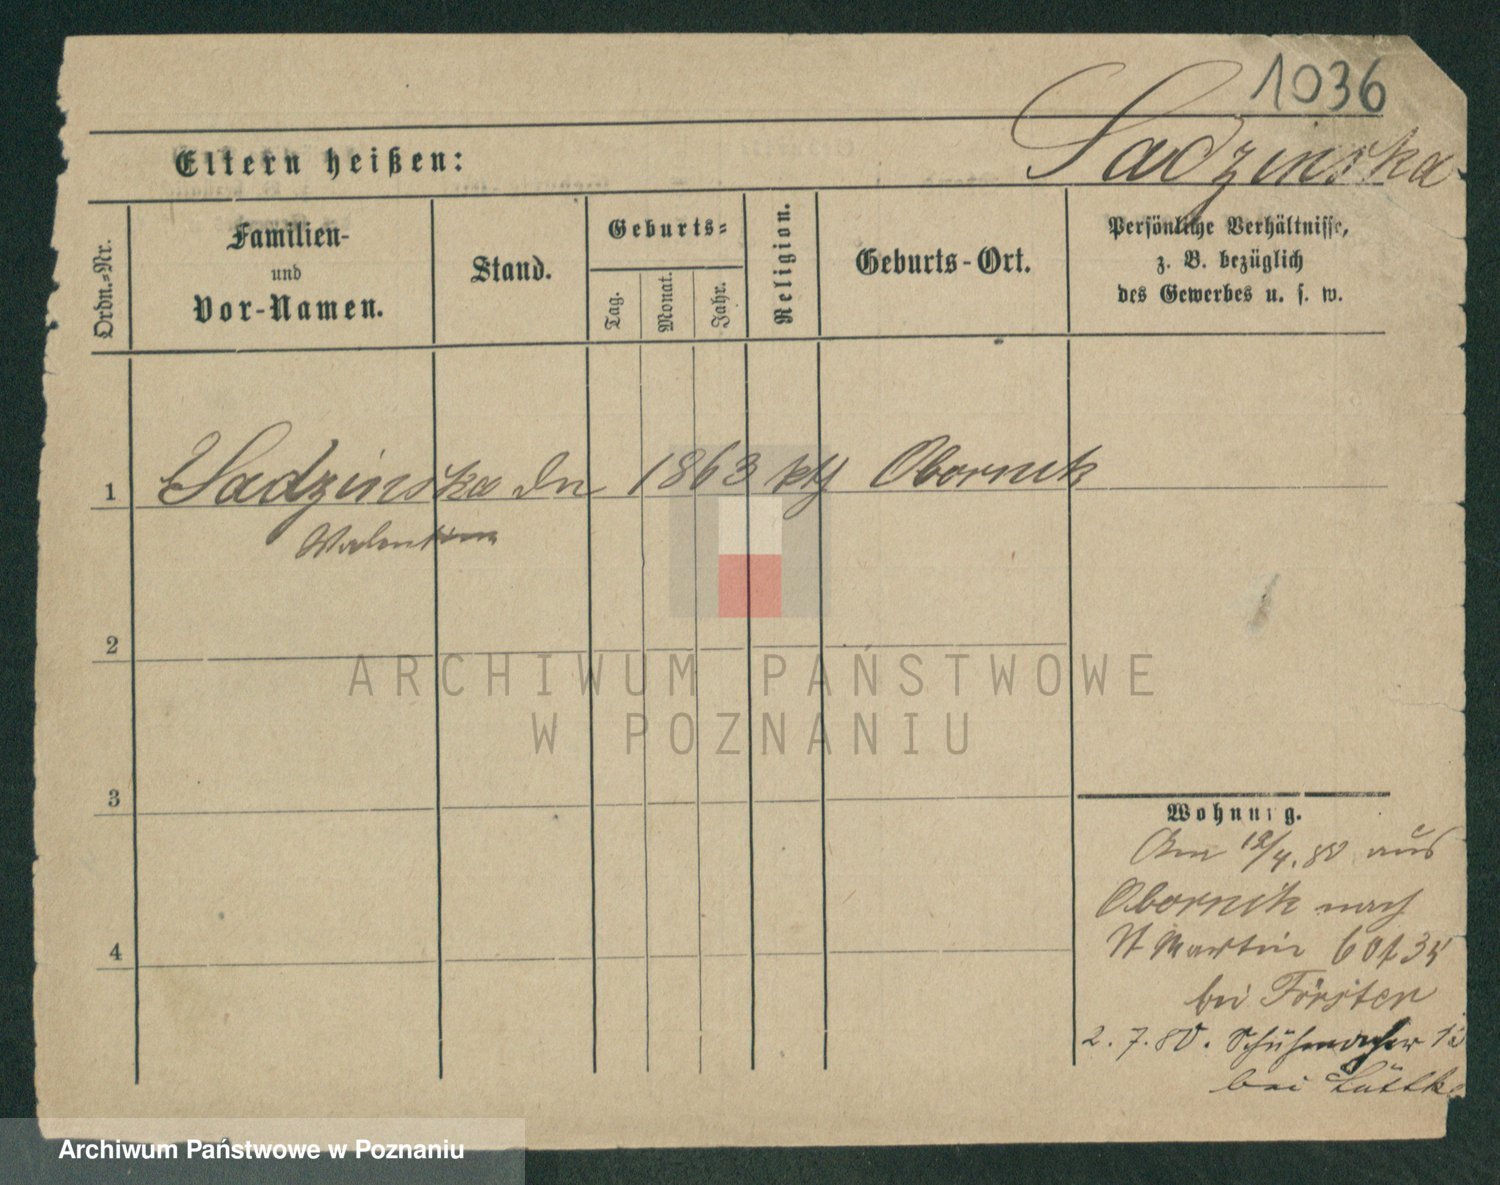 1036
Sadzinska
Eltern heißen:
Ordn.-Nr.
Familien-
und
Vor-Namen.
Stand.
Geburts-
Tag.
Monat.
Jahr.
Religion.
Geburts-Ort.
Persönliche Verhältnisse,
z. B. bezüglich
des Gewerbes u. s. w.
1 Sadzinska 1863 kth Obornik
Valentina
2
ARCHIWUM PAŃSTWOWE
W POZNANIU
3
Wohnung.
Am 12/4. 80 aus
Obornik nach
4
St Martin 60
bei Förster
2. 7. 80. Schuhmacher
bei
Archiwum Państwowe w Poznaniu